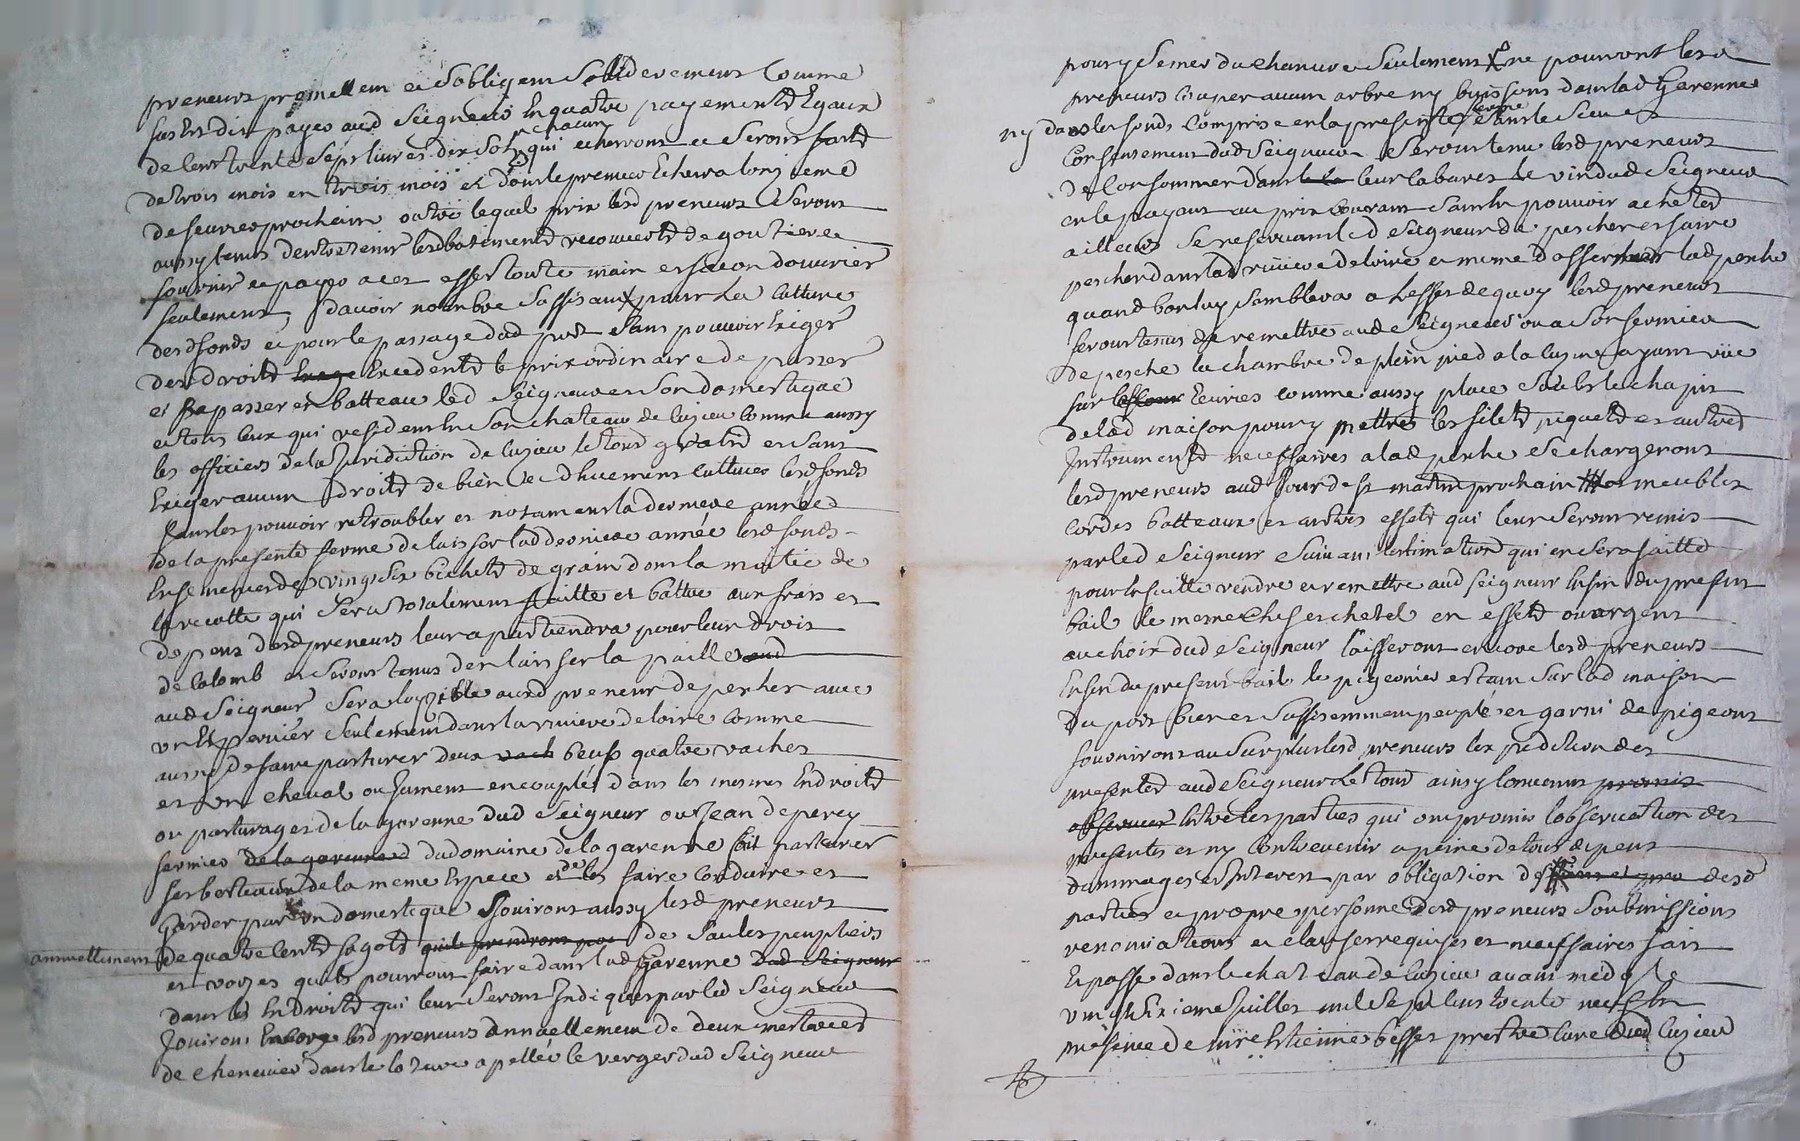 preneurs promettent et sobligent soliderement comme
sus est dit payer aud Seigneur en quatre payements Egaux
de cent trente sept livres dix sols chacun qui echerront et seront faits
de trois mois en trois mois et dont le premier echera lonzieme
de feuvrier prochain outre lequel prix lesd preneurs Seront
aussy tenus dentretenir lesd batiments recouverts de goutiere
fournir et payer a cet effet toute main et facon douvrier
seulement, davoir nombre suffisant pour la Culture
desd fonds et pour le passage dud port Sans pouvoir Exiger
des droits Excedents le prix ordinaire de passer
et repasser en batteau led Seigneur et son domestique
et tous ceux qui resident en Son chateau de luzieu comme aussy
les officiers de la Juridiction de luzieu le tout gratis et sans
Exiger aucun droits de bien et dhuement cultiver lesd fonds
sans les pouvoir retroubler et notament la derniere année
de la presente ferme de laisser lad derniere année lesd fonds
Ensemencer de vingt six bichets de grain dont la moitie de
la recolte qui sera totalement faitte et battue aux frais et
depens desd preneurs leur apartiendra pour leur droit
de Colomb et Seront tenus de laisser la paille
aud Seigneur Sera loyzible ausd preneur de pescher avec
un Epervier Seulement dans la riviere de loire comme
aussi de faire pasturer deux vach beufs quatre vaches
et un cheval ou Jument encouplés dans les mesmes Endroits
ou pasturages de la garenne dud Seigneur ou Jean deperey
fermier de la garenne dudomaine de la garenne fait pasturer
ses bestiaux de la meme Espece et de les faire Conduire et
Garder par un domestique Jouiront aussy lesd preneurs
annuellement de quatre cents fagots quils prendront de Saules peupliers
et vorzes quils pourront faire dans lad garenne dud Seigneur
dans les Endroits qui leur Seront Indiqués par led Seigneur
Jouiront Encore lesd preneurs annuellement de deux
de chenevier dans le apellée le verger dud Seigneur
pour y Semer du chanvre Seulement ne pourront lesd
preneurs Couper aucun arbre ny buissons dans lad Garenne
ny dans les fonds Compris en la presente ferme Sans le Sceu et
Consentement dud Seigneur Seront tenu lesd preneurs
de Consommer dans leur Cabaret le vin dud Seigneur
en le payant au prix Courant Sans en pouvoir acheter
ailleurs Se reservant led Seigneur de pescher et faire
pescher dans lad riviere de loire et meme daffermer lad peche
quand bon luy semblera a Leffet de quoy lesd preneurs
seront tenus de remettre aud Seigneur ou a son fermier
de pesche la chambre de plein pied a la cuzine ayant vüe
sur Ecuries comme aussy place Soubs le chapit
de lad maison pour y mettre les filets piquets et autres
Instruments necessaires a lad peche Se chargeront
lesd preneurs aud Jour de st martin prochain des meubles
Cordes batteaux et autres effets qui leur Seront remis
par led Seigneur Suivant lestimation qui en Sera faitte
pour Ensuitte rendre et remettre aud seigneur Enfin du present
bail le meme en effets ou argent
au choix dud Seigneur laisseront encore lesd preneurs
Enfin du present bail le pigeonier estant Sur lad maison
du port bien et suffisemment peuplé et garni de pigeons
fourniront au Surplus lesd preneurs Expedition des
presentes aud Seigneur Le tout ainsy Convenus promis
observer Entre les parties qui ont promis lobservation des
presentes et ny Contrevenir a peine de tous depens
dommages et Interest par obligation desd
parties et propre personne desd preneurs Soubmissions
renonciations et clauses requises et necessaires fait
Et passé dans le chateau de luzieu avant midy le
vingt sixieme Juillet mil Sept cens trente neuf En
presence de mre Estienne besses prestre cure dud luzieu